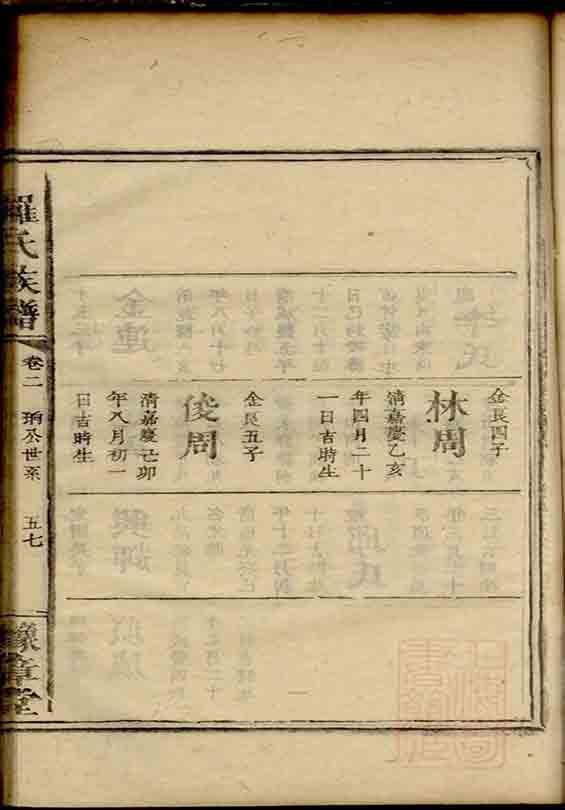 金良四子
林周
清嘉慶乙亥
年四月二十
一日吉時生
金良五子
俊周
清嘉慶己卯
年八月初一
日吉時生
羅氏族譜
卷二
珦公世系
五七
豫章堂